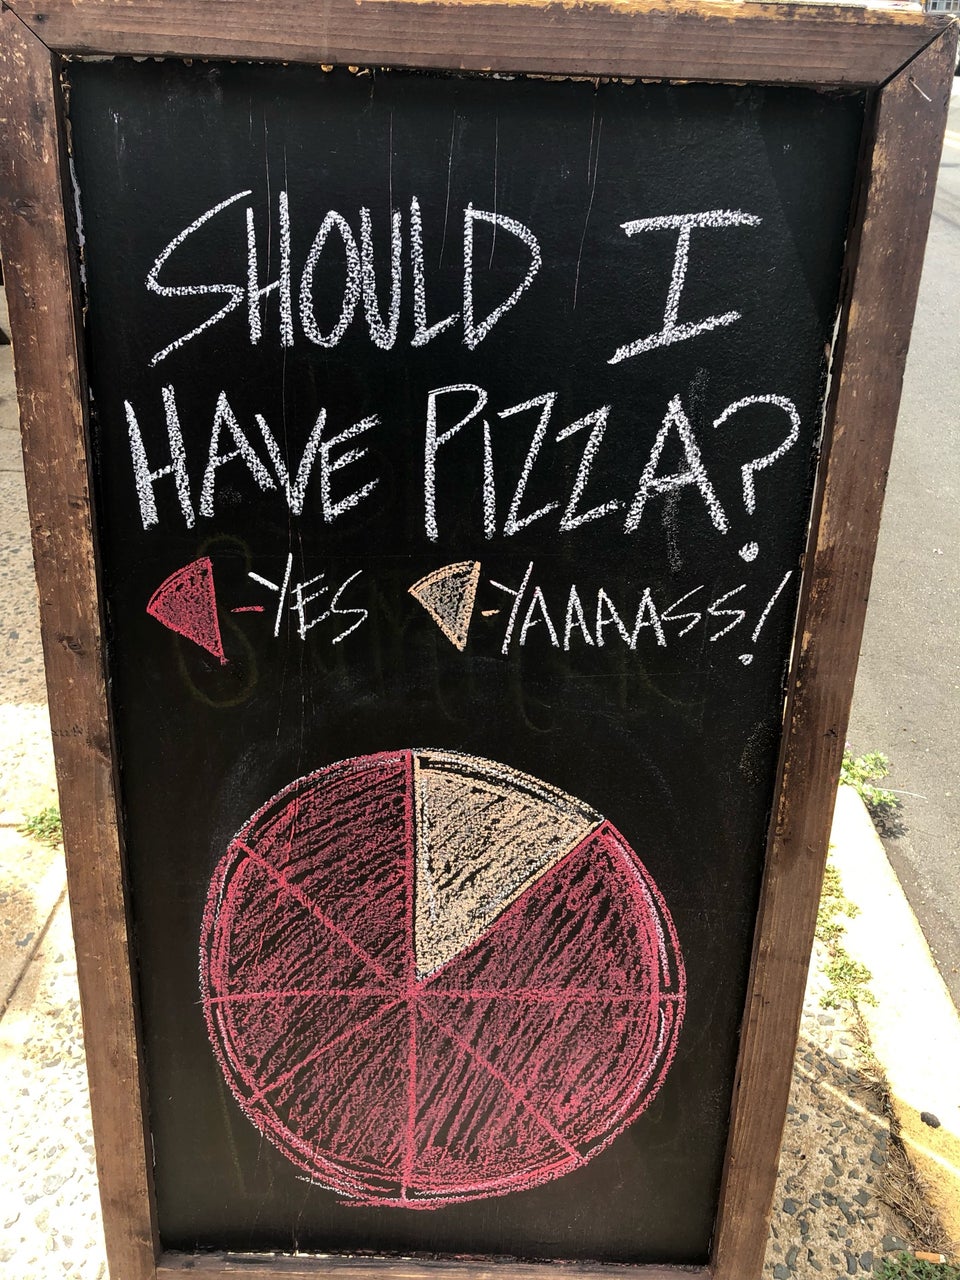 SHOULD I
HAVE PIZZA?
-YES -YAAAASS!